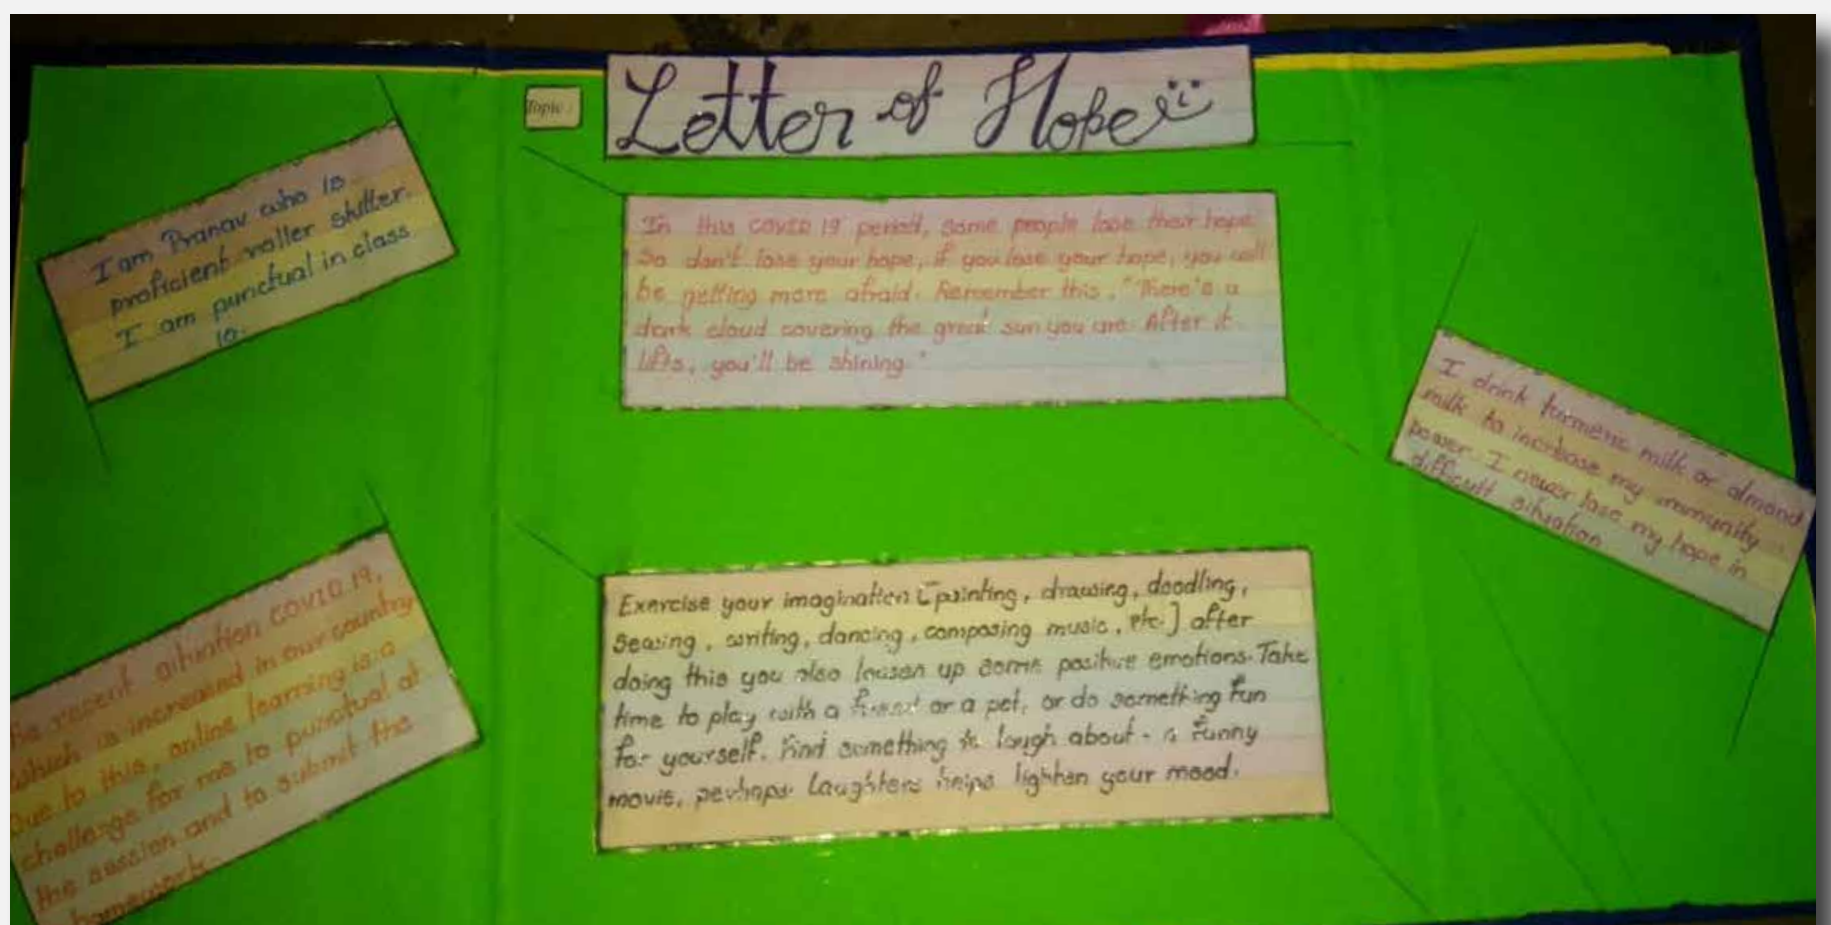 Topic :
Letter of Hope
I am Pranav who is
proficient roller skitter.
I am punctual in class
10.
In this COVID 19 period, some people lose their hope.
So don't lose your hope, if you lose your hope, you will
be getting more afraid. Remember this, "There's a
dark cloud covering the great sun you are. After it
lifts, you'll be shining."
I drink turmeric milk or almond
milk to increase my immunity
power. I never lose my hope in
difficult situation
recent situation COVID 19,
which is increased in our country
Due to this, online learning is a
challenge for me to punctual at
the session and to submit the
homework.
Exercise your imagination [painting, drawing, doodling,
Sewing, writing, dancing, composing music, etc.] after
doing this you also loosen up some positive emotions. Take
time to play with a friend or a pet, or do something fun
for yourself. Find something to laugh about - a funny
movie, perhaps. Laughters helps lighten your mood.